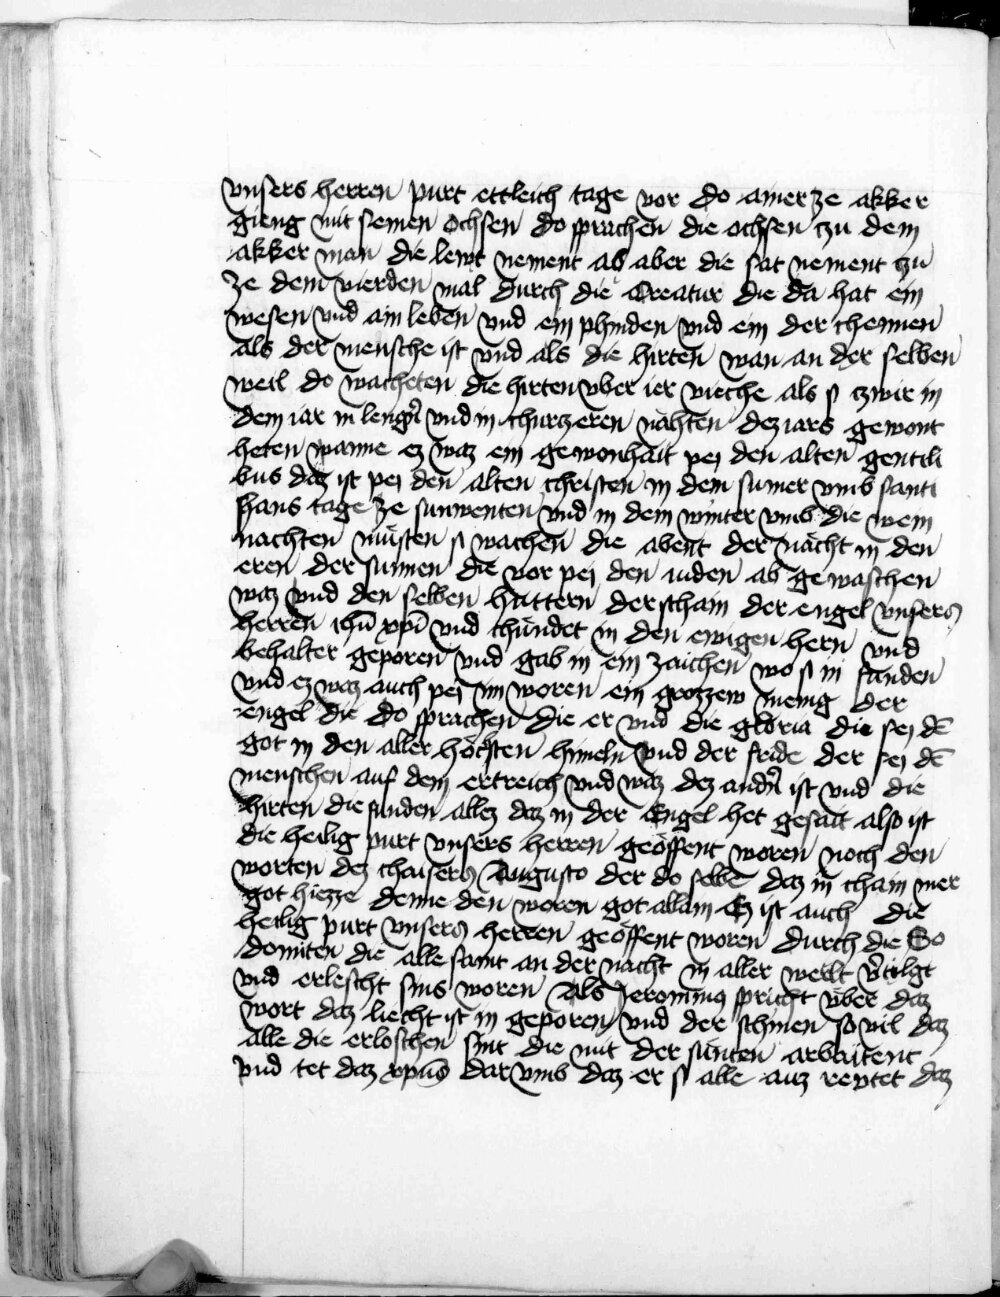 vnsers herren purt ettleich tage vor do ainer ze akker
gieng mit seinen ochsen do sprachen die ochsen zu dem
akker man die lewt nement ab aber die sat nement zu
ze dem vierden mal durch die Creatur die da hat ein
wesen vnd ain leben vnd ein phinden vnd ein der chennen
als der mensche ist vnd als die hirten wan an der selben
weil do wacheten die hirten vber ier vieche als sy zwir in
dem iar in lengͤn vnd in churczeren nähten dez iars gewont
heten wanne ez waz ein gewonhait pey den alten gentili
bus daz ist pey den alten christen in dem sumer vmb sant
Hans tage ze sunwenten vnd in dem winter vmb die wein
nachten müsten sy wachen die abent der nächt in den
eren der sunnen die vor pey den iuden ab gewaschen
waz vnd den selben hüttern derschain der engel vnsers
herren ihū xpī vnd chündet in den ewigen hern vnd
behalter geporen vnd gab in ein zaichen wo sy in fanden
vnd ez waz auch pey im woren ein grozzew menig der
engel die do sprachen die er vnd die gloria die sey dē
got in den aller höchsten himeln vnd der fride der sey dē
menschen auf dem ertreich vnd waz dez andn̄ ist vnd die
hirten die funden allez daz in der Engel het gesait also ist
die heilig purt vnsers herren geöffent woren noch den
worten dez chaisers Augusto der do selbē daz in chain mer
got hiezze denne den woren got allain Ez ist auch die
heilig purt vnsers herren geöffent woren durch die So
domiten die alle samt an der nacht in aller werlt v̄tilgt
vnd erlescht sins woren Als Jeronimus spricht vber daz
wort daz liecht ist in geporen vnd der schinen so vil daz
alle die erloschen sint die mit der sünten arbaitent
vnd tet daz xpūs dar vmb daz er sy alle auz rewtet daz